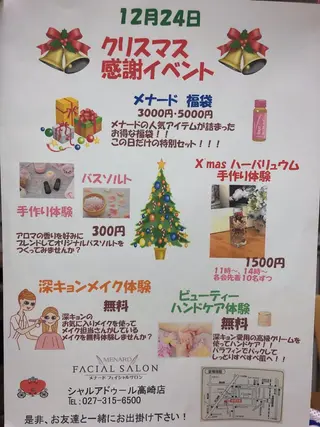 12月24日
クリスマス
感謝イベント
メナード 福袋
3000円・5000円
メナードの人気アイテムが詰まった
お得な福袋!!
この日だけの特別セット!!!
バスソルト
手作り体験
300円
アロマの香りを好みに
ブレンドしてオリジナルバスソルトを
つくってみませんか?
X'mas ハーバリュウム
手作り体験
1500円
11時~、14時~
各会先着10名ずつ
深キョンメイク体験
無料
深キョンの
お気に入りメイクを使って
メイク担当さんがしている
メイクを無料体験しませんか?
ビューティー
ハンドケア体験
無料
深キョン愛用の高級クリームを
使ってハンドケア!!
パラフィンでパックして
しっとりすべすべ肌へ!!
MENARD
FACIAL SALON
メナード フェイシャルサロン
シャルアドゥール高崎店
TEL:027-315-6500
是非、お友達と一緒にお出掛け下さい!